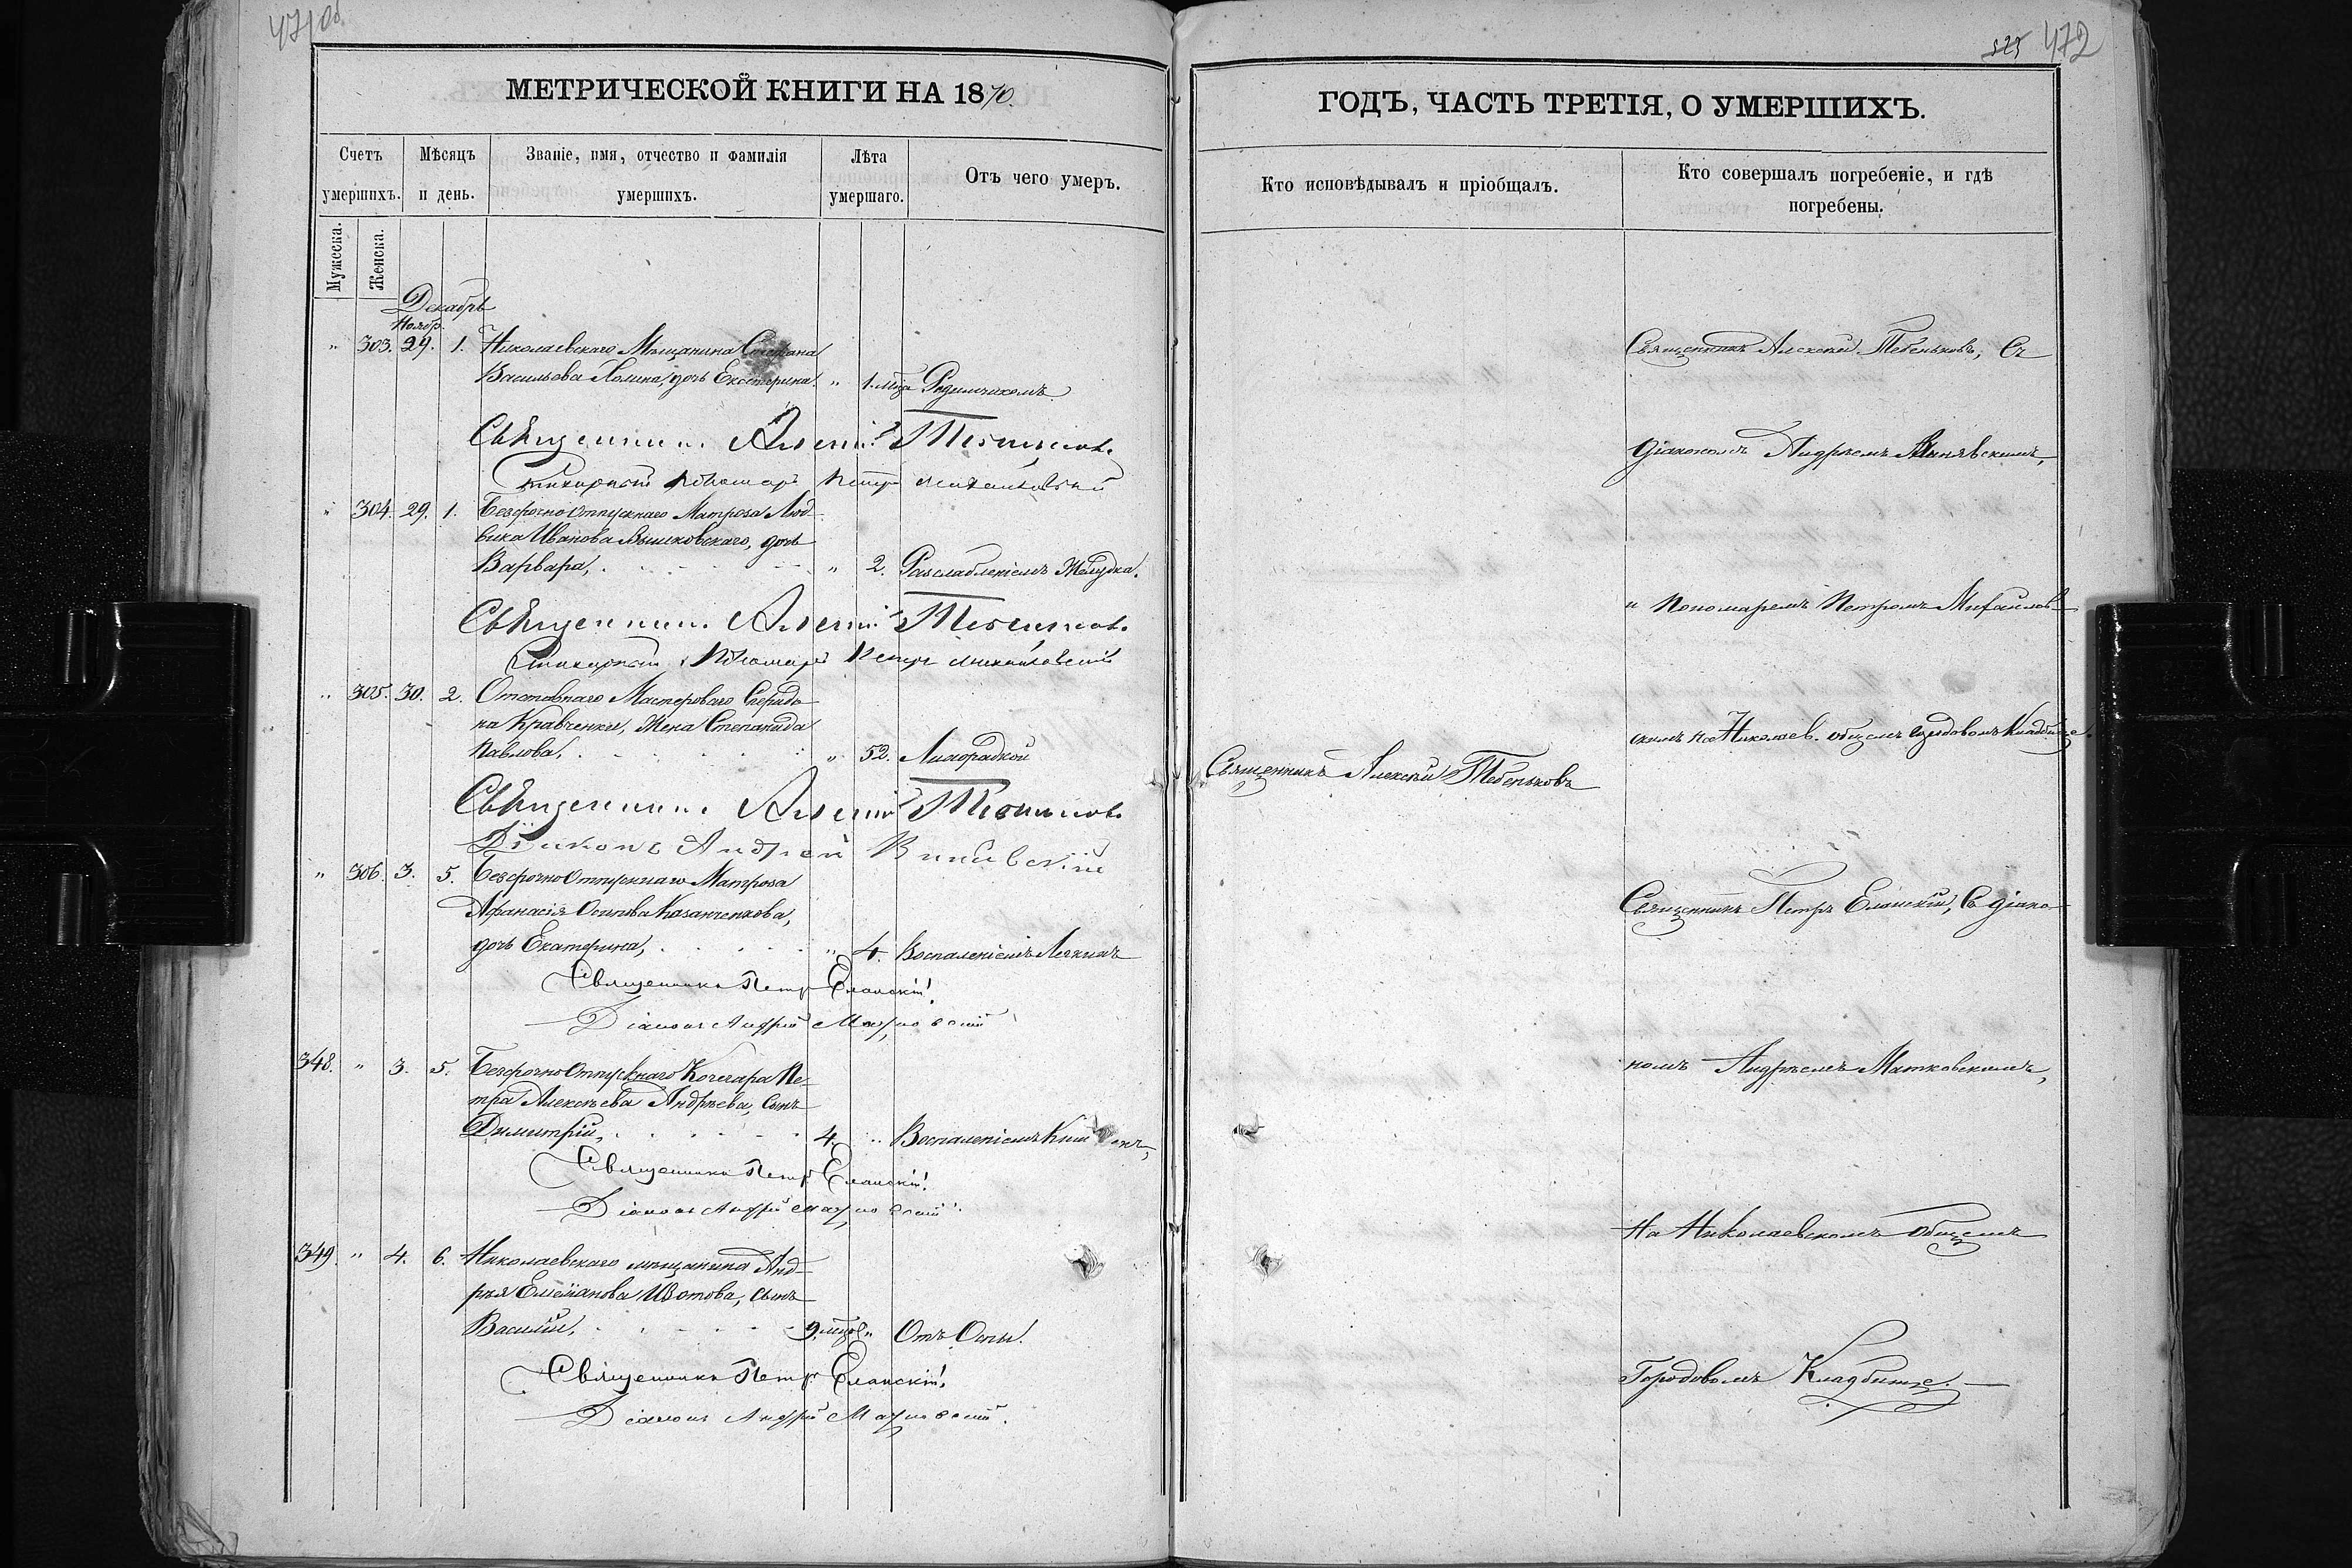 471 об.
МЕТРИЧЕСКОЙ КНИГИ НА 1870.
Счетъ умершихъ.
Мѣсяцъ и день.
Званіе, имя, отчество и фамилія умершихъ.
Лѣта умершаго.
Отъ чего умеръ.
Мужеска.
Женска.
Декабрь
Ноябр.
" 303. 29. 1. Николаевскаго Мѣщанина Степана
Васильева дочь Екатерина. " 1. мца Родимчикомъ.
Священникъ Алексій Тебеньковъ
Стихарный Пономарь Петръ Михайловскій
" 304. 29. 1. Безсрочно отпускнаго Матроса Люд-
вика Иванова дочь
Варвара, " 2. Разслабленіемъ Желудка.
Священникъ Алексій Тебеньковъ
Стихарный Пономарь Петръ Михайловскій
" 305. 30. 2. Отставнаго Мастероваго Спиридо-
на Кравченки, Жена Степанида
Павлова, " 52. Лихорадкой
Священникъ Алексій Тебеньковъ
Діаконъ Андрей
" 306. 3. 5. Безсрочно Отпускнаго Матроса
Афанасія Осипова Казанченкова,
дочь Екатерина, " 4. Воспаленіемъ Легкихъ
Священникъ Петръ Еланскій
Діаконъ Андрей Матковскій
348. " 3. 5. Безсрочно Отпускнаго Кочегара Пе-
тра Алексѣева Андрѣева, Сынъ
Димитрій, 4. " Воспаленіемъ
Священникъ Петръ Еланскій
Діаконъ Андрей Матковскій
349. " 4. 6. Николаевскаго мѣщанина Анд-
рѣя Емеліанова Изотова, сынъ
Василій, 9. мцов " Отъ Оспы.
Священникъ Петръ Еланскій
Діаконъ Андрей Матковскій
525 472
ГОДЪ, ЧАСТЬ ТРЕТІЯ, О УМЕРШИХЪ.
Кто исповѣдывалъ и пріобщалъ.
Кто совершалъ погребеніе, и гдѣ
погребены.
Священникъ Алексѣй Тебеньковъ
Священникъ Алексій Тебеньковъ, Съ
діакономъ Андрѣемъ
и Пономаремъ Петромъ Михайлов-
скимъ на Николаев. общемъ городовомъ Кладбище.
Священникъ Петръ Еланскій, Съ діако-
номъ Андрѣемъ Матковскимъ,
На Николаевскомъ Общемъ
Городовомъ Кладбище.